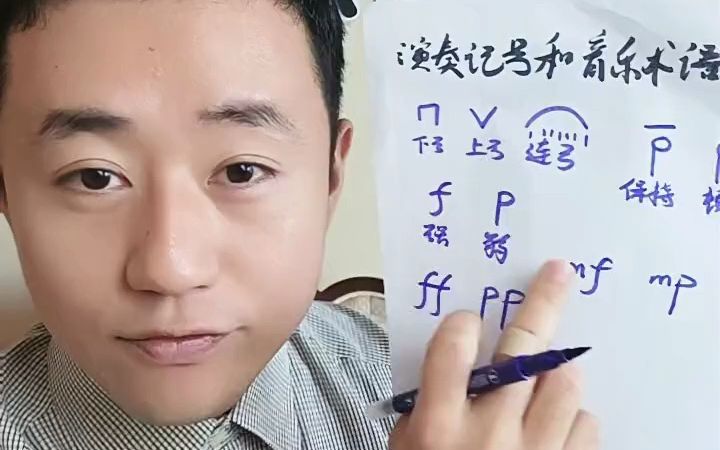 演奏记号和音乐术语
下弓 上弓 连弓 保持
f p
强 弱
mf mp
ff pp